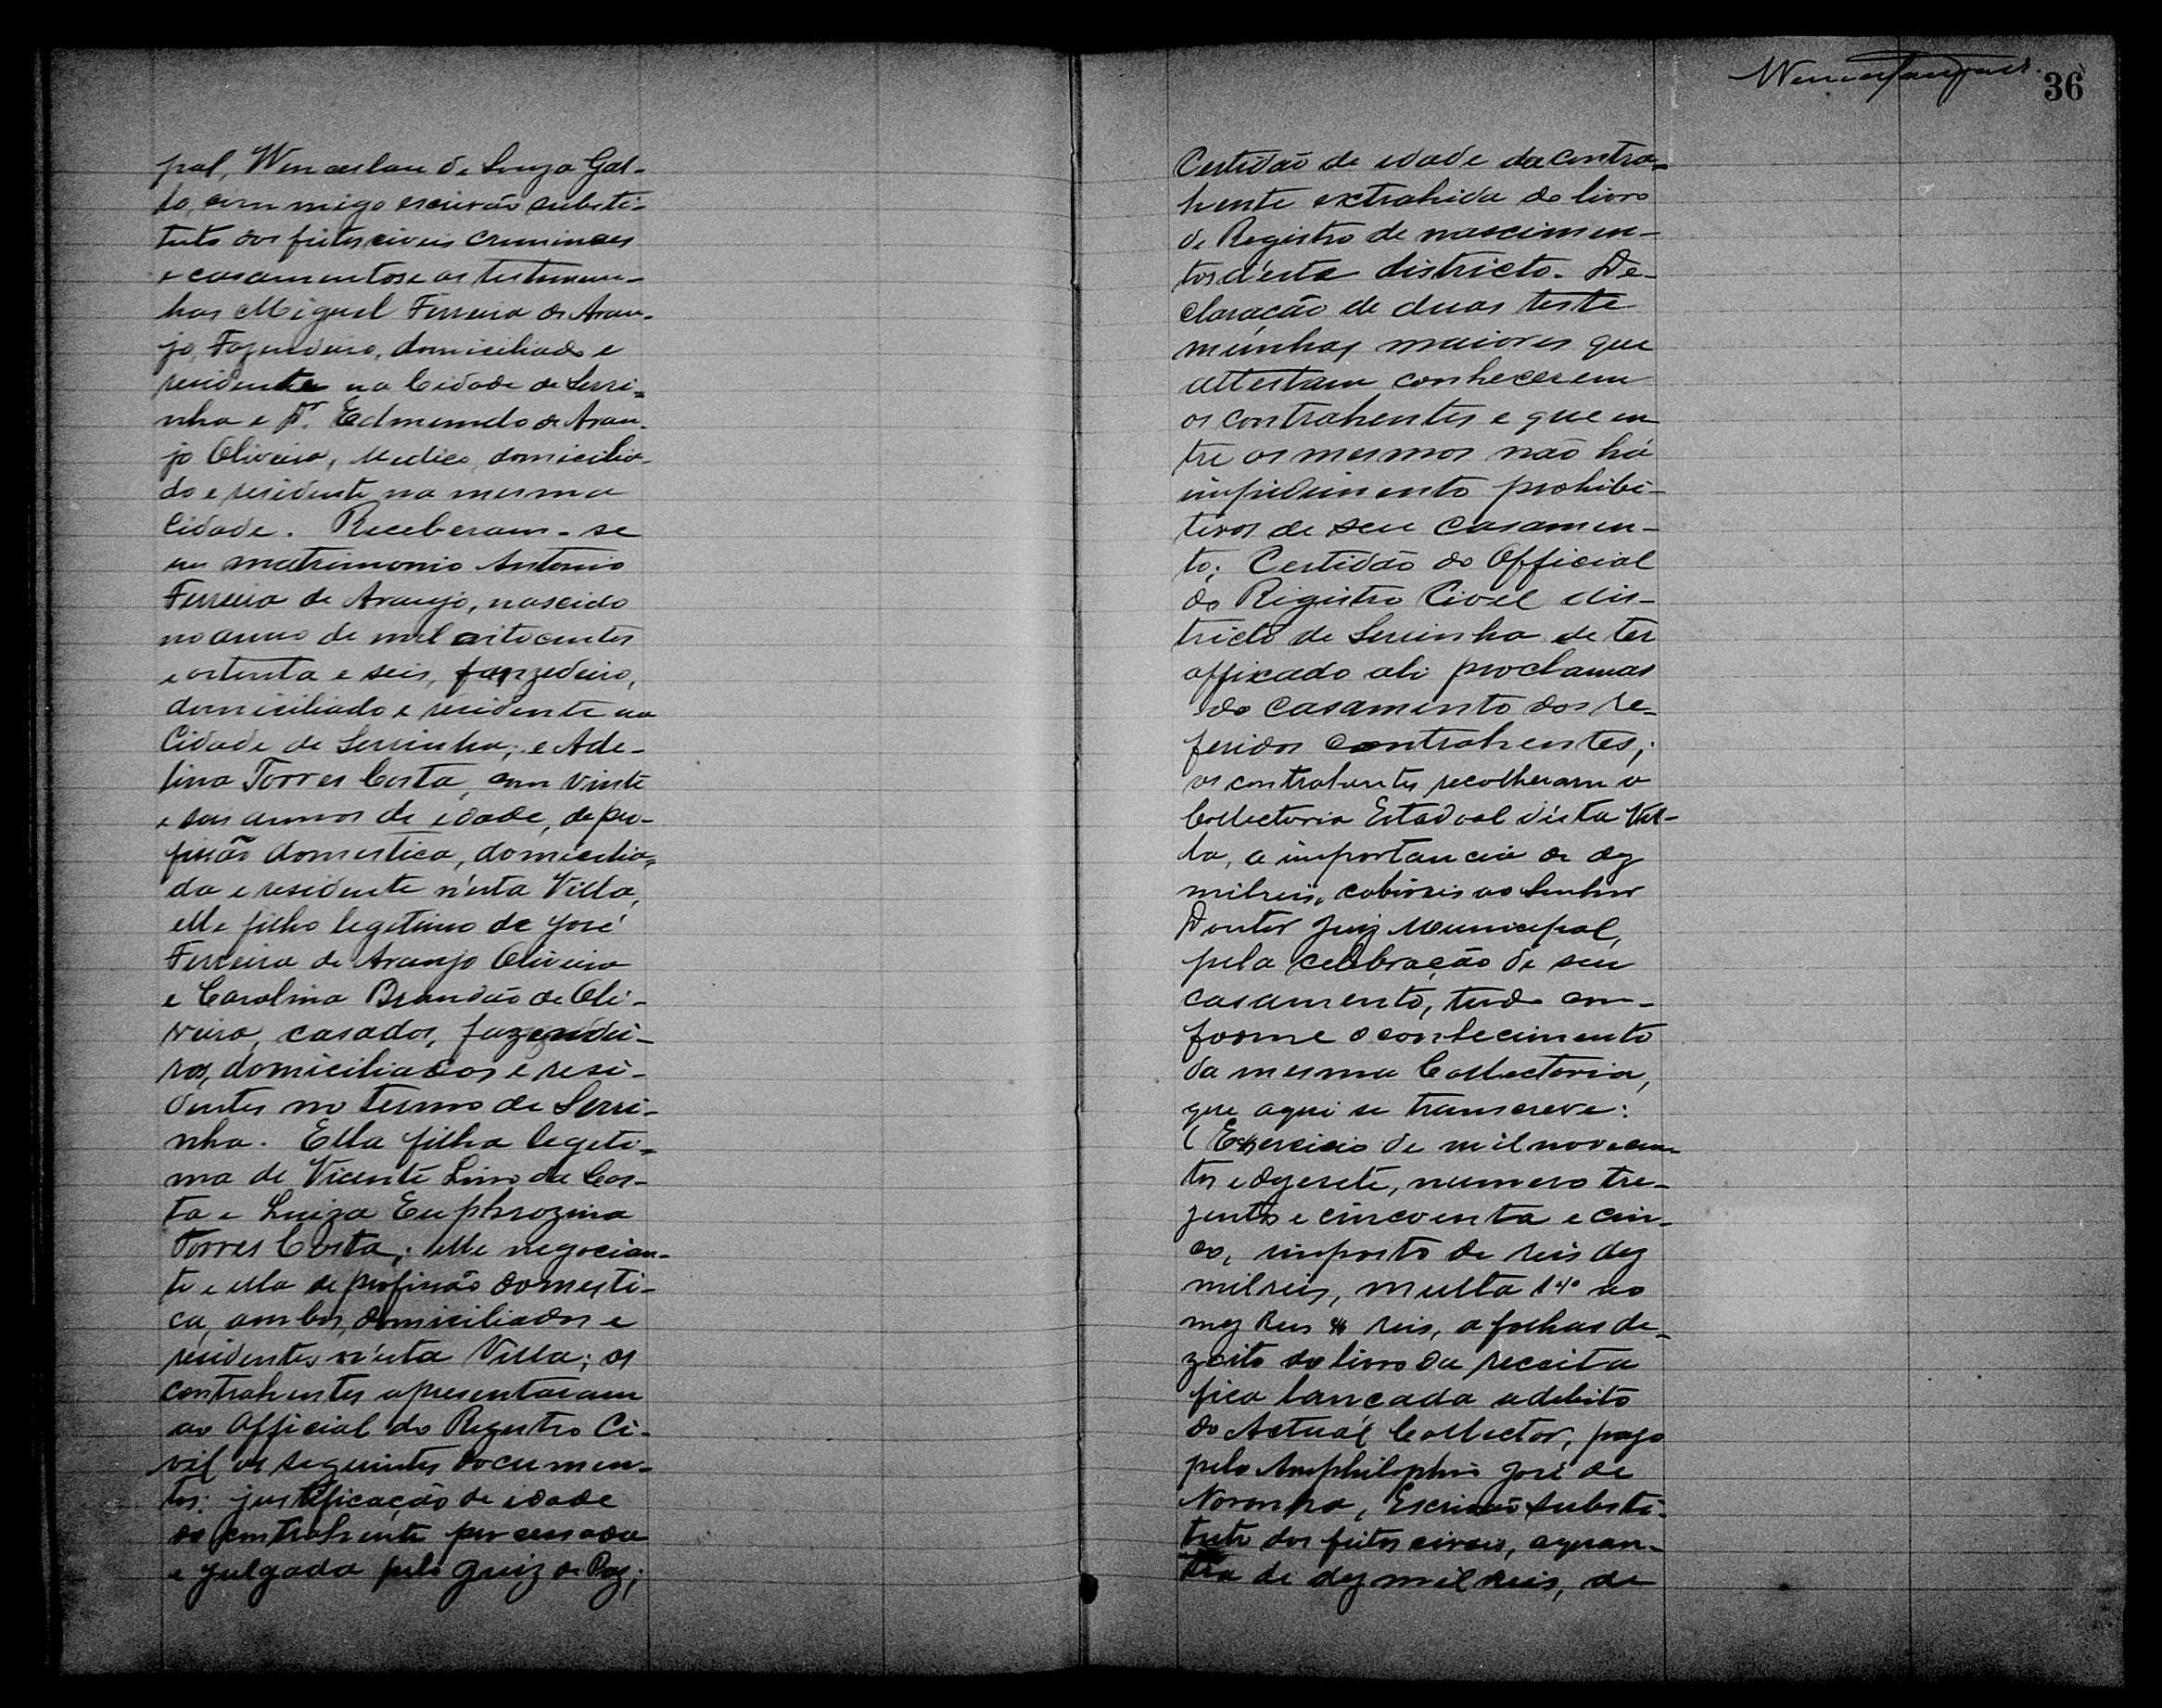 pal, Wenceslau de Souza Gal-
lo, commigo escrivão substi-
tuto dos feitos civeis criminaes
e casamentos e as testemun-
has Miguel Ferreira de Arau-
jo, Fazendeiro, domiciliado e
residente na Cidade de Serri-
nha e Dr. Edmundo de Arau-
jo Oliveira, Medico, domicilia-
do e residente na mesma
Cidade. Receberam-se
em matrimonio Antonio
Ferreira de Araujo, nascido
no anno de mil oitocentos
e oitenta e seis, fanzedeiro,
domiciliado e residente na
Cidade de Serrinha; e Ade-
lina Torres Costa, com vinte
e seis annos de edade, de pro-
fissão domestica, domicilia-
da e residente n'esta Villa,
elle filho legitimo de José
Ferreira de Araujo Oliveira
e Carolina Brandão de Oli-
veira, casados, fazendei-
ros, domiciliados e resi-
dentes no termo de Serri-
nha. Ella filha legiti-
ma de Vicente Lino da Cos-
ta e Luiza Euphrozina
Torres Costa; elle negocian-
te e ella de profissão domesti-
ca, ambos, domiciliados e
residentes n'esta Villa; os
contrahentes apresentaram
ao Official do Registro Ci-
vil os seguintes documen-
tos: justificação de idade
do contrahente processada
e julgada pelo Juiz de Paz;
36
Certidão de edade da contra-
hente extrahida do livro
de Registro de nascimen-
tos d'este districto. De-
claração de duas teste
munhas maiores que
attestam conhecerem
os contrahentes e que en
tre os mesmos não há
impedimento prohibi-
tivos de seu casamen-
to; Certidão do Official
do Registro Civel dis-
tricto de Serrinha de ter
affixado ali proclamas
do casamento dos re-
feridos contrahentes;
os contrahentes recolheram a
Collectoria Estadoal d'esta Vil-
la, a importancia de dez
milreis, cabiveis ao Senhor
Doutor Juiz Municipal,
pela celebração de seu
casamento, tudo con-
forme o conhecimento
da mesma Collectoria,
que aqui se transcreve:
(Exercicio de mil novecen-
tos e dezesete, numero tre-
zentos e cincoenta e cin-
co, imposto de reis dez
milreis, multa 1% ao
mez Reis reis, a folhas de-
zoito do livro da receita
fica lançada a debito
do Actual Collector, pago
pelo Amphilophio José de
Noronha, Escrivão substi-
tuto dos feitos civeis, a quan-
tia de dez mil reis, de